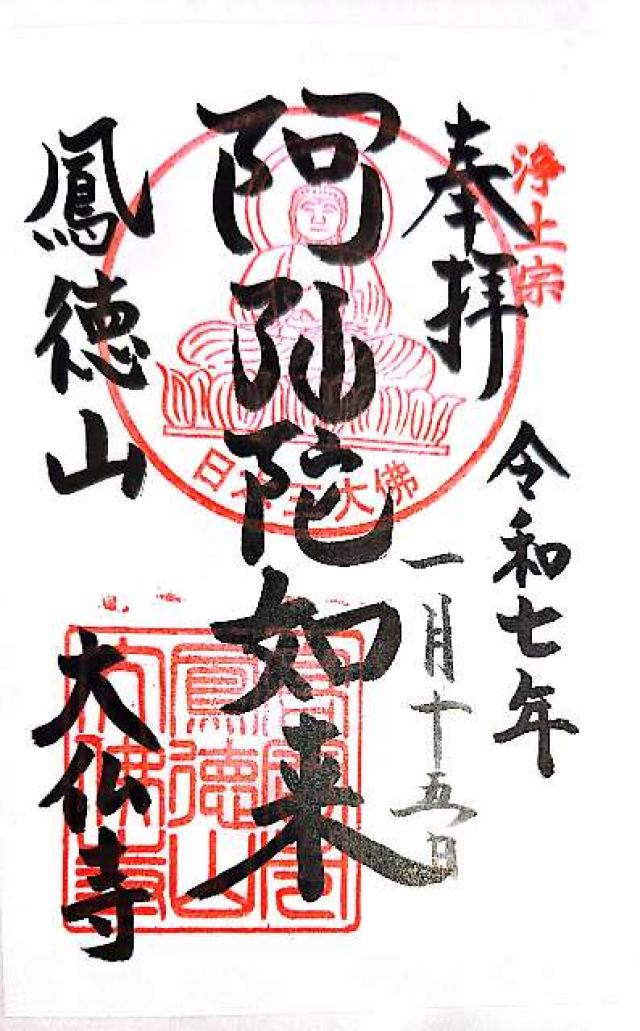 浄土宗
奉拝
令和七年
一月十五日
阿弥陀如来
日本三大佛
鳳徳山
大仏寺
鳳徳山
大佛寺